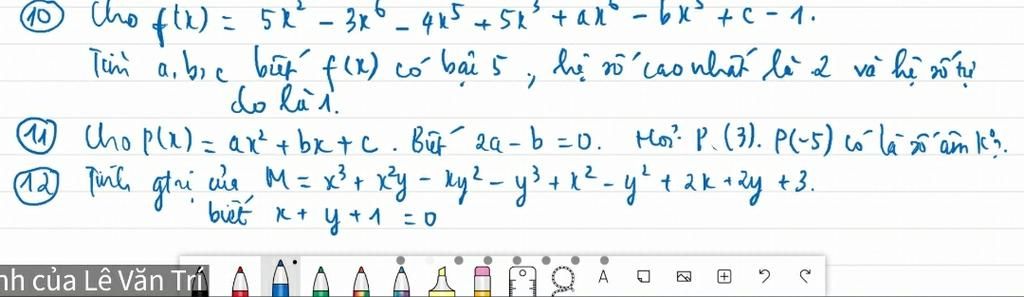 ⑩ Cho f(x) = 5x² - 3x⁶ - 4x⁵ + 5x³ + ax⁶ - bx⁵ + c - 1.
Tìm a, b, c biết f(x) có bậc 5, hệ số cao nhất là 2 và hệ số tự
do là 1.
⑪ Cho P(x) = ax² + bx + c. Biết 2a - b = 0. Hỏi P(3). P(-5) có là số âm k°?
⑫ Tính gtrị của M = x³ + x²y - xy² - y³ + x² - y² + 2x + 2y + 3.
biết x + y + 1 = 0
nh của Lê Văn Trí
A